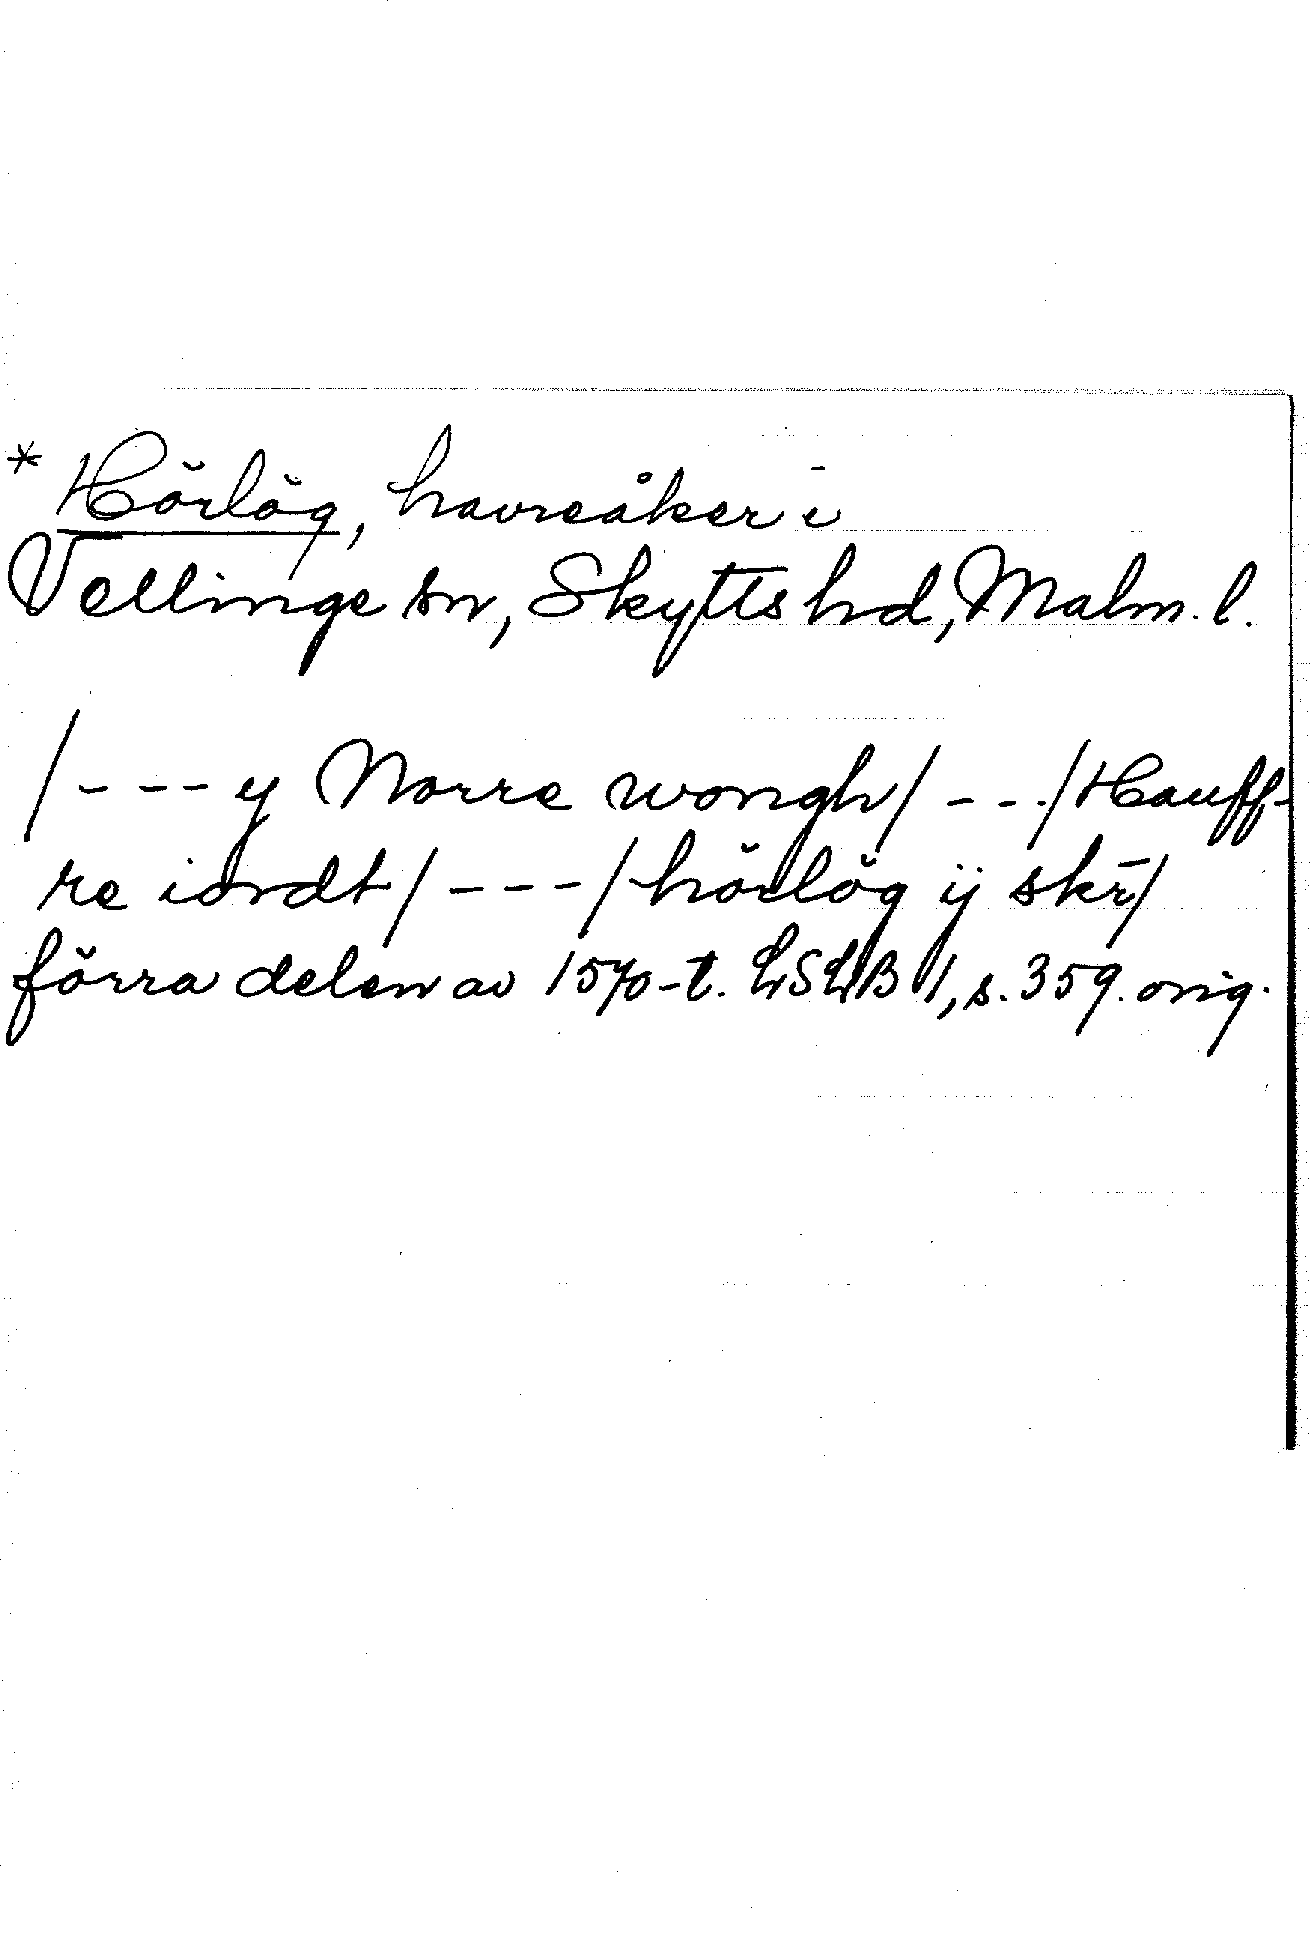 * Hörlög, havreåker i
Vellinge sn, Skytts hd, Malm. l.
/---y Norre wongh/---/Hauff-
re iordt/---/hörlög ij skr̄/
förra delen av 1570-t. LSLB 1, s. 359. orig.